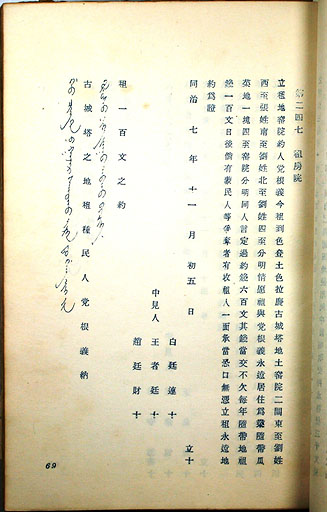 第二四七 租房院
立租地窑院約人党根義今租到色登土色拉廢古城塔地土窑院二間東至劉姓
西至張姓南至劉姓北至劉姓四至分明情愿租與党根義永遠居住為業隨帶瓜
英地一塊四至窑院分明同人言定過約錢六百文其錢當交不欠每年隨帶地租
錢一百文日後倘有蒙民人等爭奪者有收租人一面承當恐口無憑立租永遠地
約為證
同治 七年 十一月 初五日 立十
中見人
白廷蓮十
王者廷十
趙廷財十
租一百文之約
古城塔之地租種民人党根義納
69